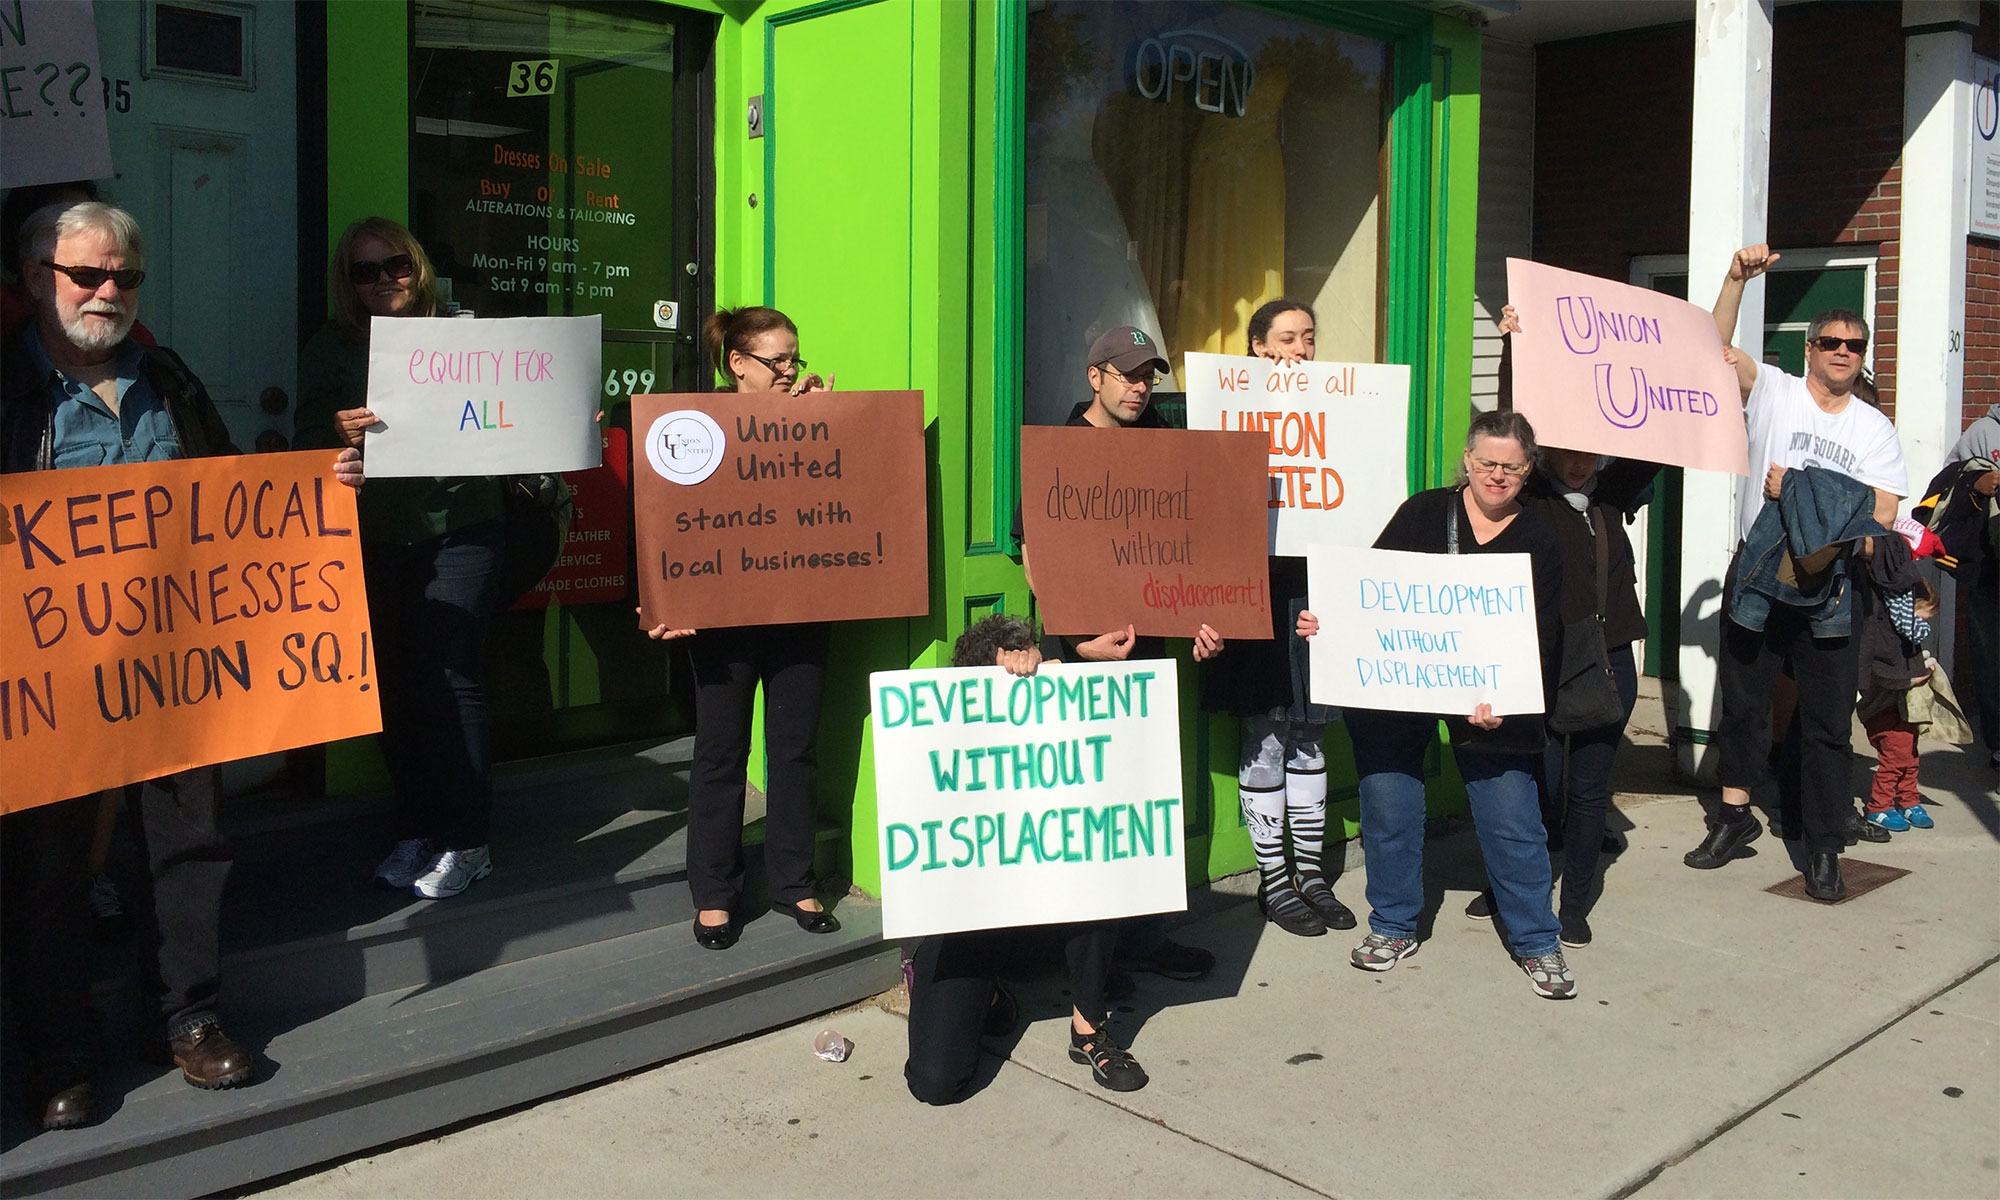 N
E??
35
36
Dresses On Sale
Buy or Rent
ALTERATIONS & TAILORING
HOURS
Mon-Fri 9 am - 7 pm
Sat 9 am - 5 pm
699
LEATHER
SERVICE
MADE CLOTHES
OPEN
KEEP LOCAL
BUSINESSES
IN UNION SQ.!
eQUITY FOR
ALL
UNION
UNITED
Union
United
stands with
local businesses!
development
without
displacement!
DEVELOPMENT
WITHOUT
DISPLACEMENT
We are all...
UNION
ITED
DEVELOPMENT
WITHOUT
DISPLACEMENT
UNION
UNITED
SQUARE
30